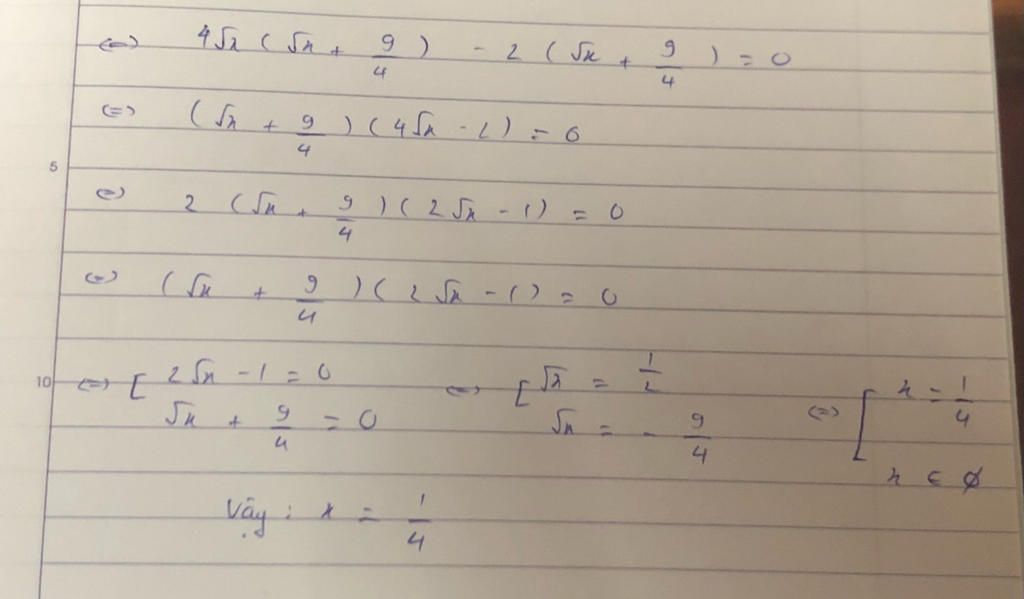 ⇔ 4√x (√x + 9/4) - 2 (√x + 9/4) = 0
⇔ (√x + 9/4)(4√x - 2) = 0
5
⇔ 2 (√x + 9/4)(2√x - 1) = 0
⇔ (√x + 9/4)(2√x - 1) = 0
10 ⇔ [ 2√x - 1 = 0 ⇔ [ √x = 1/2 ⇔ [ x = 1/4
√x + 9/4 = 0 √x = - 9/4 x ∈ ∅
Vậy : x = 1/4